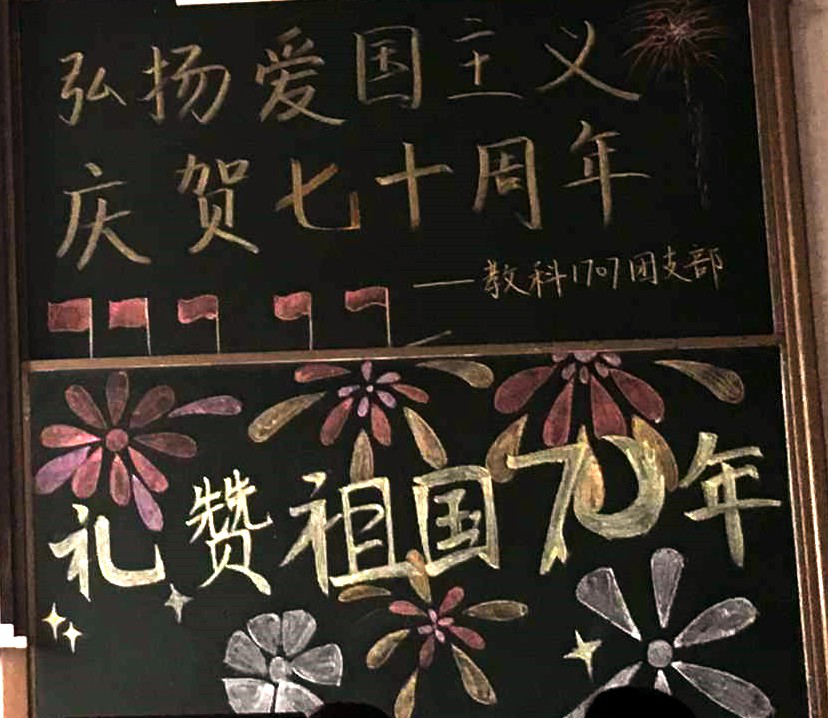 弘扬爱国主义
庆贺七十周年
——教科1707团支部
礼赞祖国70年